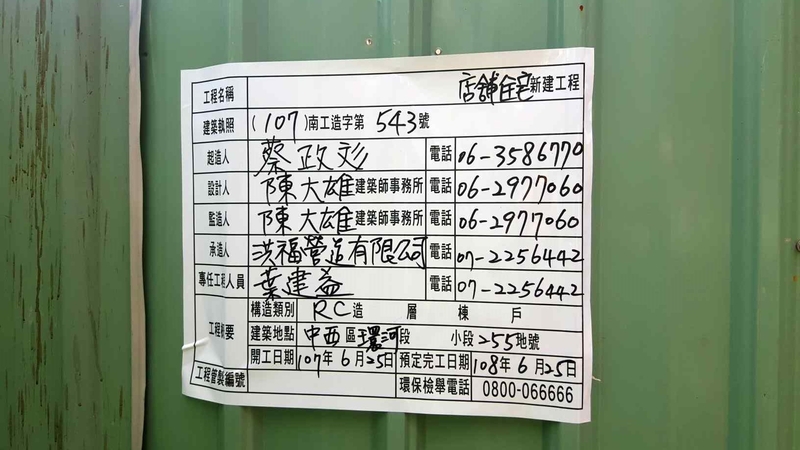 工程名稱 店舖住宅新建工程
建築執照 (107)南工造字第 543號
起造人 蔡政彣 電話 06-3586770
設計人 陳大雄建築師事務所 電話 06-2977060
監造人 陳大雄建築師事務所 電話 06-2977060
承造人 洪福營造有限公司 電話 07-2256442
專任工程人員 葉建益 電話 07-2256442
工程概要 構造類別 RC造 層 棟 戶
建築地點 中西區環河段 小段 255地號
開工日期 107年6月25日 預定完工日期 108年6月25日
工程管製編號 環保檢舉電話 0800-066666